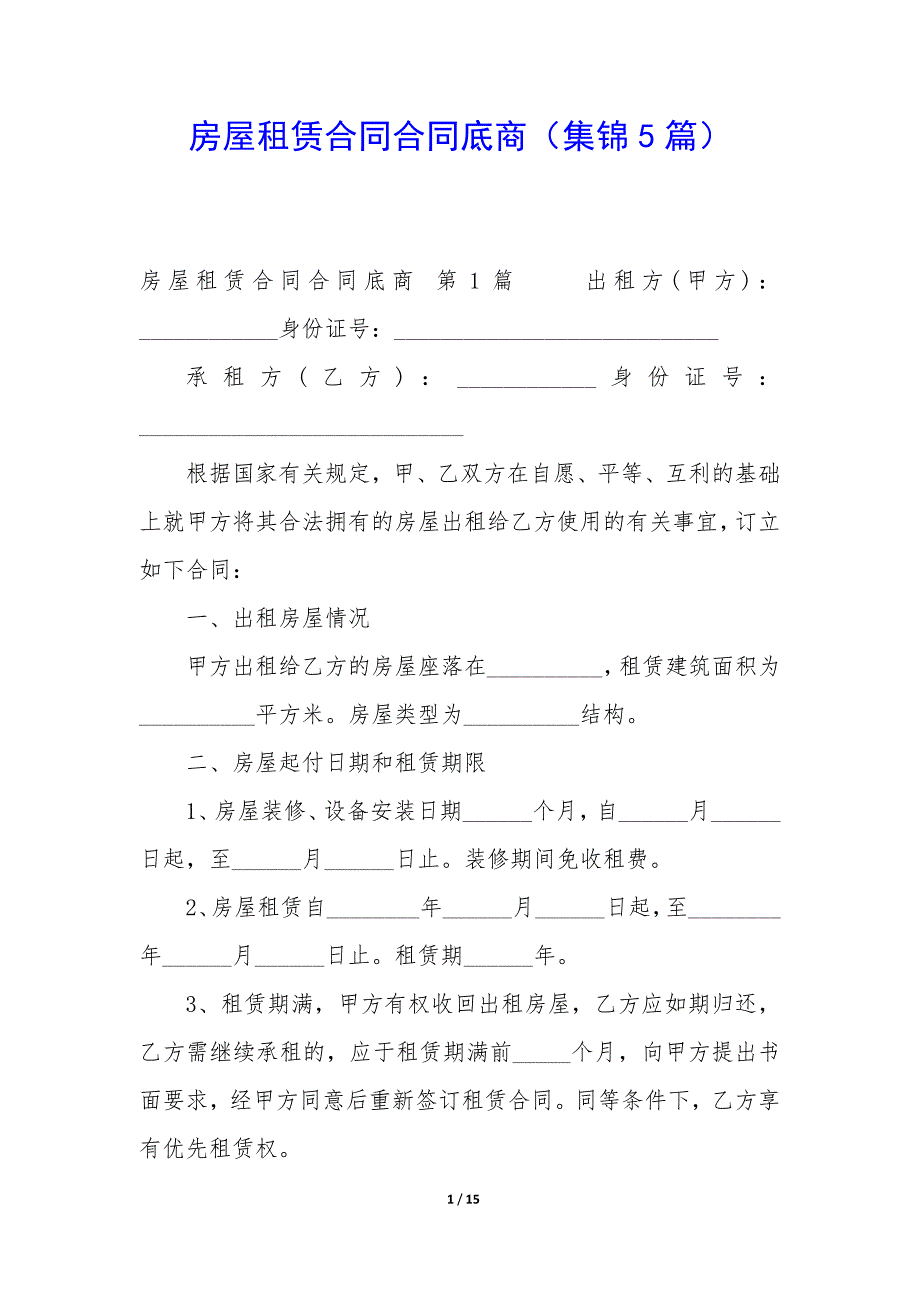 房屋租赁合同合同底商（集锦5篇）
房屋租赁合同合同底商 第1篇 出租方(甲方)：
____________身份证号：____________________________
承租方(乙方)：____________身份证号：
____________________________
根据国家有关规定，甲、乙双方在自愿、平等、互利的基础
上就甲方将其合法拥有的房屋出租给乙方使用的有关事宜，订立
如下合同：
一、出租房屋情况
甲方出租给乙方的房屋座落在__________，租赁建筑面积为
__________平方米。房屋类型为__________结构。
二、房屋起付日期和租赁期限
1、房屋装修、设备安装日期______个月，自______月______
日起，至______月______日止。装修期间免收租费。
2、房屋租赁自________年______月______日起，至________
年______月______日止。租赁期______年。
3、租赁期满，甲方有权收回出租房屋，乙方应如期归还，
乙方需继续承租的，应于租赁期满前_____个月，向甲方提出书
面要求，经甲方同意后重新签订租赁合同。同等条件下，乙方享
有优先租赁权。
1 / 15